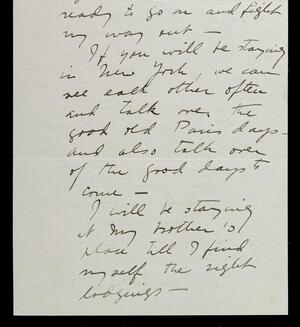 ready to go on and fight
my way out —
If you will be staying
in New York, we can
see each other often
and talk over the
good old Paris days —
and also talk over
of the good days to
come —
I will be staying
at my brother's
place till I find
myself the right
lodgings —